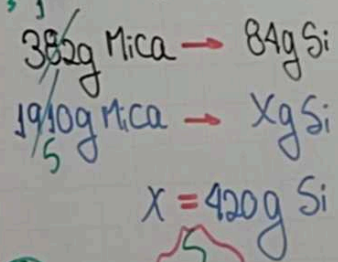 1
382g Mica → 84g Si
1910g Mica → Xg Si
5
X = 420g Si
5